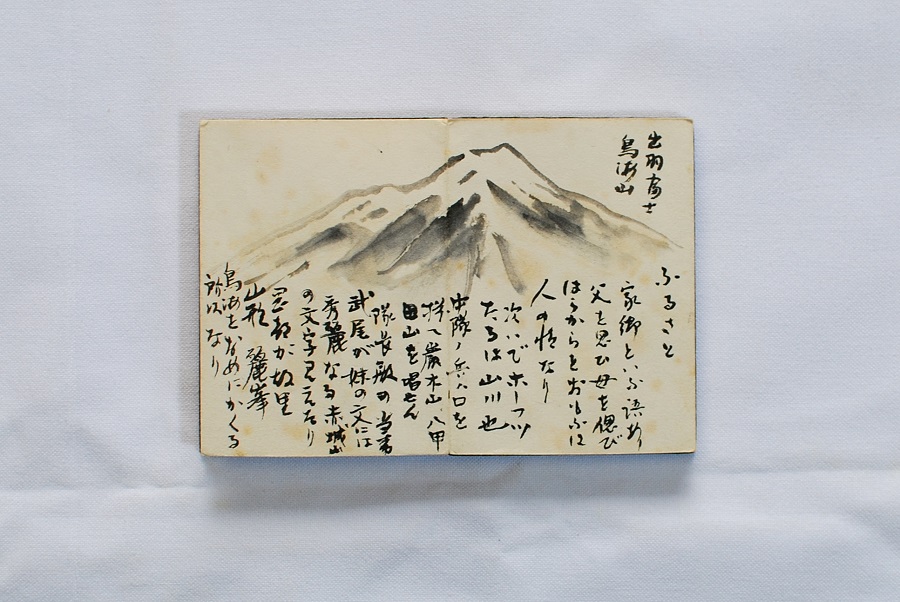 出羽富士
鳥海山
ふるさと
家郷といふ語あり
父を思ひ母を偲び
はらからをおもふは
人の情なり
次いでホーフツ
たるは山川也
中隊ノ兵八口を
揃へ巌木山八甲
田山を唱せん
隊長殿の
武尾が妹の文には
秀麗なる赤城山
の文字見えたり
が故里
山形 麗峯
鳥海をなめにかくる
所以なり